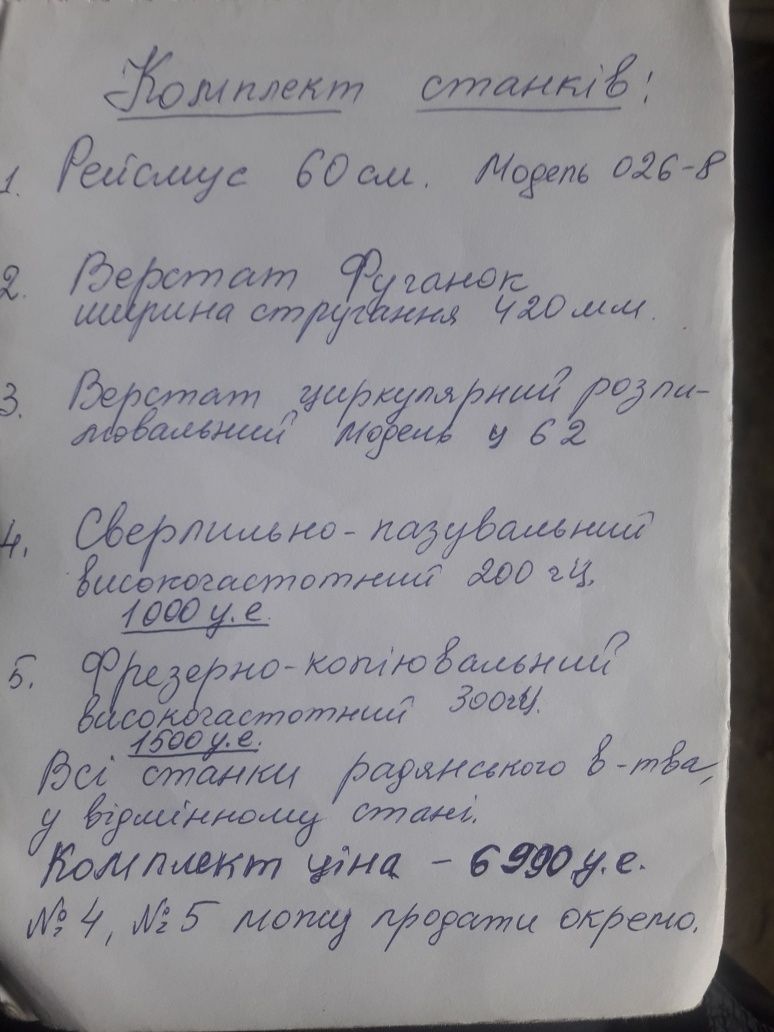 Комплект станків:
1. Рейсмус 60 см. Модель 026-8
2. Верстат Фуганок
ширина стругання 420 мм.
3. Верстат циркулярний розпи-
лювальний Модель ц 62
4. Сверлильно-пазувальний
високочастотний 200 гц.
1000 у.е.
5. Фрезерно-копіювальний
високочастотний 300гц.
1500 у.е.
Всі станки радянського в-тва,
у відмінному стані.
Комплект ціна - 6990 у.е.
№ 4, № 5 можу продати окремо.